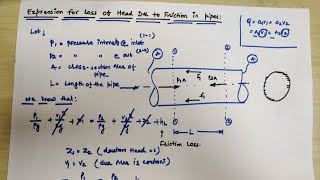 Expression for Loss of Head Due to Friction in pipes:
Let;
P1 = pressure intensity @ inlet (1-1)
P2 = " " @ out (2-2)
A = cross-section Area of pipe
L = Length of the pipe
We know that:
P1/ρg + V1²/2g + Z1 = P2/ρg + V2²/2g + Z2 + hL
Friction Loss
Z1 = Z2 (datum Head =0)
V1 = V2 (cuz Area is constant)
P1 P2
Q = a1v1 = a2v2
A
P1A
P2A
F1
L